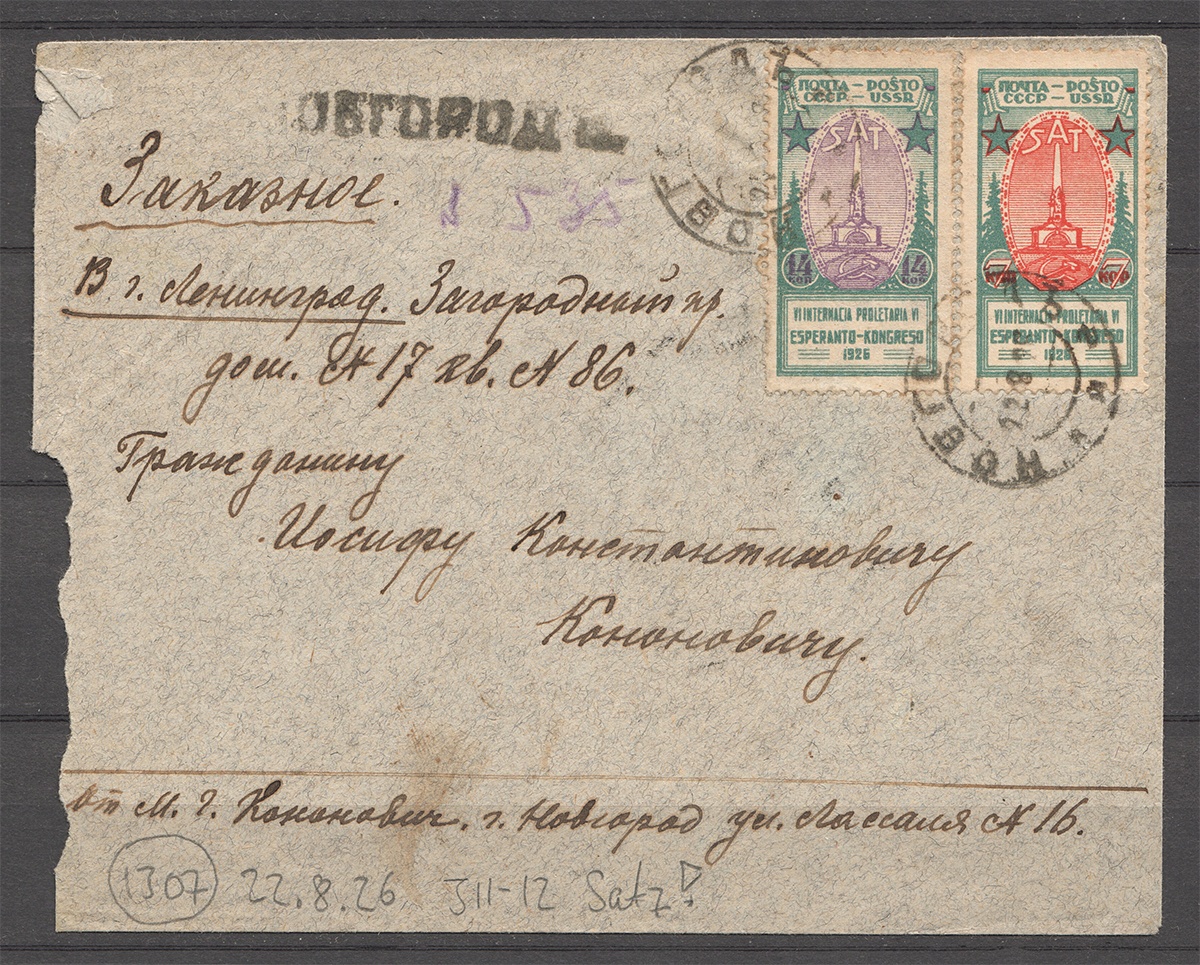 ОВГОРОД
Заказное.
535
В г. Ленинград. Загородный пр.
дом. № 17 кв. № 86.
Гражданину
Иосифу Константиновичу
Кононовичу.
от М. Г. Кононович. г. Новгород ул. Лассаля № 16.
1307 22.8.26 J11-12 Satz!
ПОЧТА – POŜTO
СССР – USSR
SAT
14 КОП 14 КОП
VI INTERNACIA PROLETARIA VI
ESPERANTO-KONGRESO
1926
ПОЧТА – POŜTO
СССР – USSR
SAT
7 КОП 7 КОП
VI INTERNACIA PROLETARIA VI
ESPERANTO-KONGRESO
1926
НОВГО
22 8